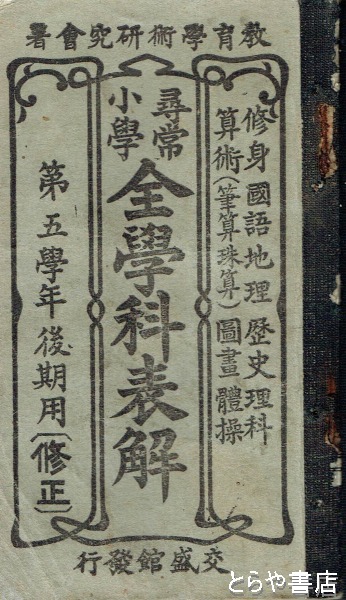 教育學術研究會著
修身國語地理歷史理科
算術(筆算珠算)圖畫體操
尋常
小學
全學科表解
第五學年後期用(修正)
交盛館發行
とらや書店